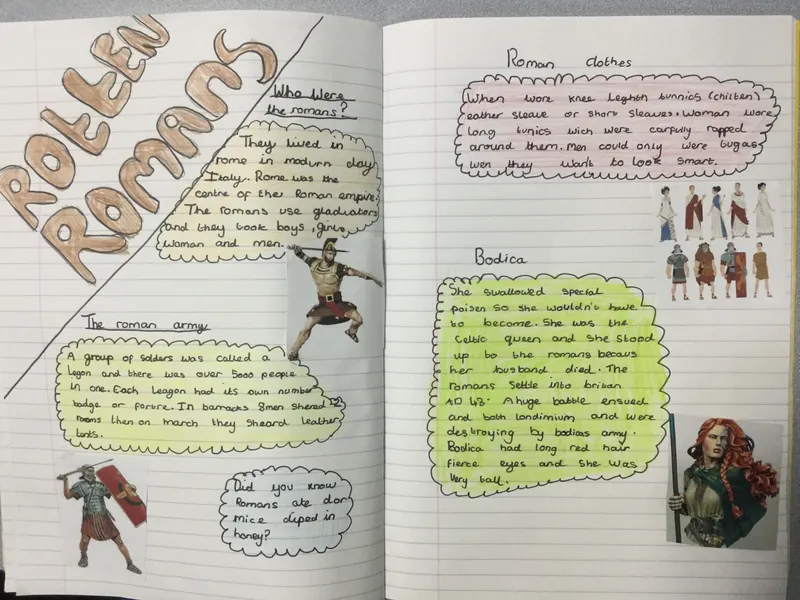 ROTTEN
ROMANS
Who Were
the romans?
They lived in
rome in modurn day
Italy. Rome was the
centre of ther Roman empire.
The romans use gladiators
and they took boys, girls,
woman and men.
The roman army
A group of solders was called a
legon and there was over 5000 people
in one. Each leagon had its own number
badge or forture. In barracks 8men shered
rooms then on march they sheard leather
tents.
Did you know
Romans ate dor
mice diped in
honey?
Roman clothes
When wore knee leghth tunnics (chilten)
eather sleave or short sleaves. Woman wore
long tunics wich were carfully rapped
around them. Men could only were tugas
wen they want to look smart.
Bodica
She swallowed special
poisen so she wouldn't have
to become. She was the
Celtic queen and she stood
up to the romans becaus
her husband died. The
romans settle into britan
AD 43. A huge battle ensued
and both londinium and were
destroying by bodicas army.
Bodica had long red hair
fierce eyes and she was
very tall.